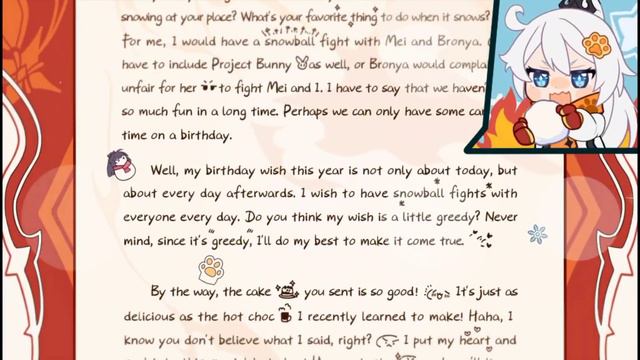 snowing at your place? What's your favorite thing to do when it snows?
For me, I would have a snowball fight with Mei and Bronya.
have to include Project Bunny as well, or Bronya would compla
unfair for her to fight Mei and I. I have to say that we haven'
so much fun in a long time. Perhaps we can only have some car
time on a birthday.
Well, my birthday wish this year is not only about today, but
about every day afterwards. I wish to have snowball fights with
everyone every day. Do you think my wish is a little greedy? Never
mind, since it's greedy, I'll do my best to make it come true.
By the way, the cake you sent is so good! It's just as
delicious as the hot choc I recently learned to make! Haha, I
know you don't believe what I said, right? I put my heart and